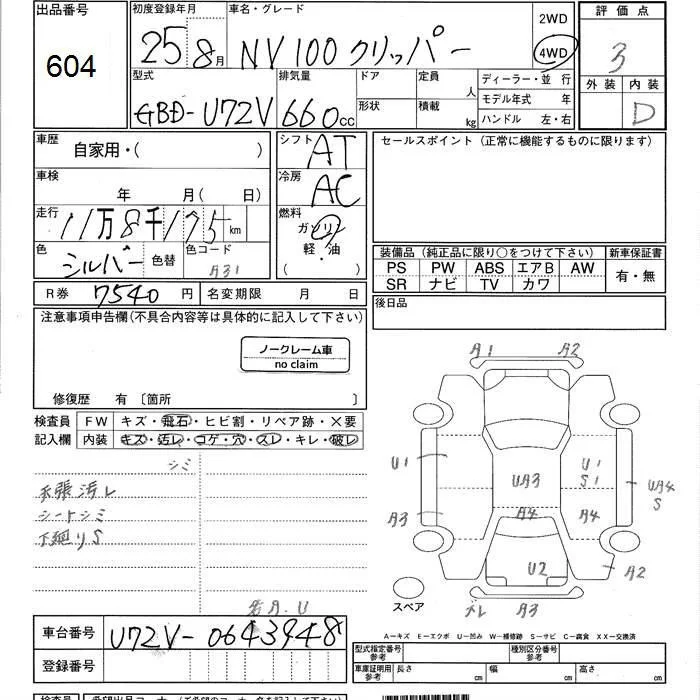 出品番号 初度登録年月 車名・グレード 2WD 評価点
604 25 8月 NV100 クリッパー 4WD 3
型式 排気量 ドア 定員 人 ディーラー・並行 外装 内装
GBD-U72V 660cc 形状 積載 kg モデル年式 年 D
ハンドル 左・右
車歴 自家用・( ) シフト AT セールスポイント (正常に機能するものに限ります)
車検 年 月(日) 冷房 AC
走行 11万8千175km 燃料 ガソリン
色 シルバー 色替 色コード A31 軽・油 ( )
装備品 (純正品に限り○をつけて下さい) 新車保証書
PS PW ABS エアB AW 有・無
SR ナビ TV カワ
R券 7540円 名変期限 月 日 後日品
注意事項申告欄(不具合内容等は具体的に記入して下さい)
ノークレーム車
no claim
修復歴 有 〔箇所 〕
検査員 FW キズ・飛石・ヒビ割・リペア跡・×要
記入欄 内装 キズ・汚レ・コゲ・穴・スレ・キレ・破レ
シミ
天張汚レ
シートシミ
下廻りS
若A.U
A1 A2
U1 UA3 U1 S1 UA4 S
A3 A4 A4
U2 A2
スペア ズレ A3
車台番号 U72V-0643948
登録番号
A―キズ E―エクボ U―凹み W―補修跡 S―サビ C―腐食 XX―交換済
型式指定番号 参考 種別区分番号 参考
車庫証明用 参考 長さ cm 幅 cm 高さ cm